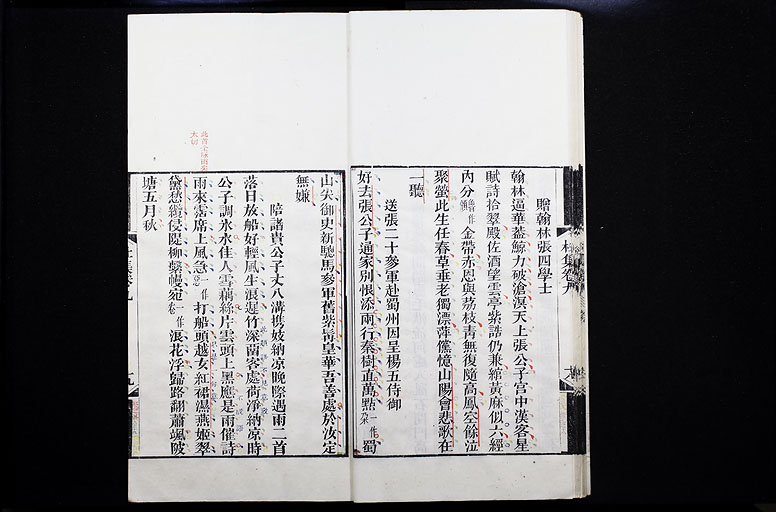 贈翰林張四學士
翰林逼華蓋鯨力破滄溟天上張公子宮中漢客星
賦詩拾翠殿佐酒望雲亭紫誥仍兼綰黃麻似六經
內分金帶赤恩與荔枝青無復隨高鳳空餘泣
聚螢此生任春草垂老獨漂萍儻憶山陽會悲歌在
一聽
送張二十參軍赴蜀州因呈楊五侍御
好去張公子通家別恨添兩行秦樹直萬點一作朶蜀
山尖御史新驄馬參軍舊紫髯皇華吾善處於汝定
無嫌
陪諸貴公子丈八溝携妓納凉晚際遇雨二首
落日放船好輕風生浪遲竹深留客處荷淨納凉時
公子調氷水佳人雪藕絲片雲頭上黑應是雨催詩
雨來霑席上風急一作惡打船頭越女紅裙濕燕姬翠
黛愁纜侵隄柳繫幔宛一作卷浪花浮歸路翻蕭颯陂
塘五月秋
杜集卷九